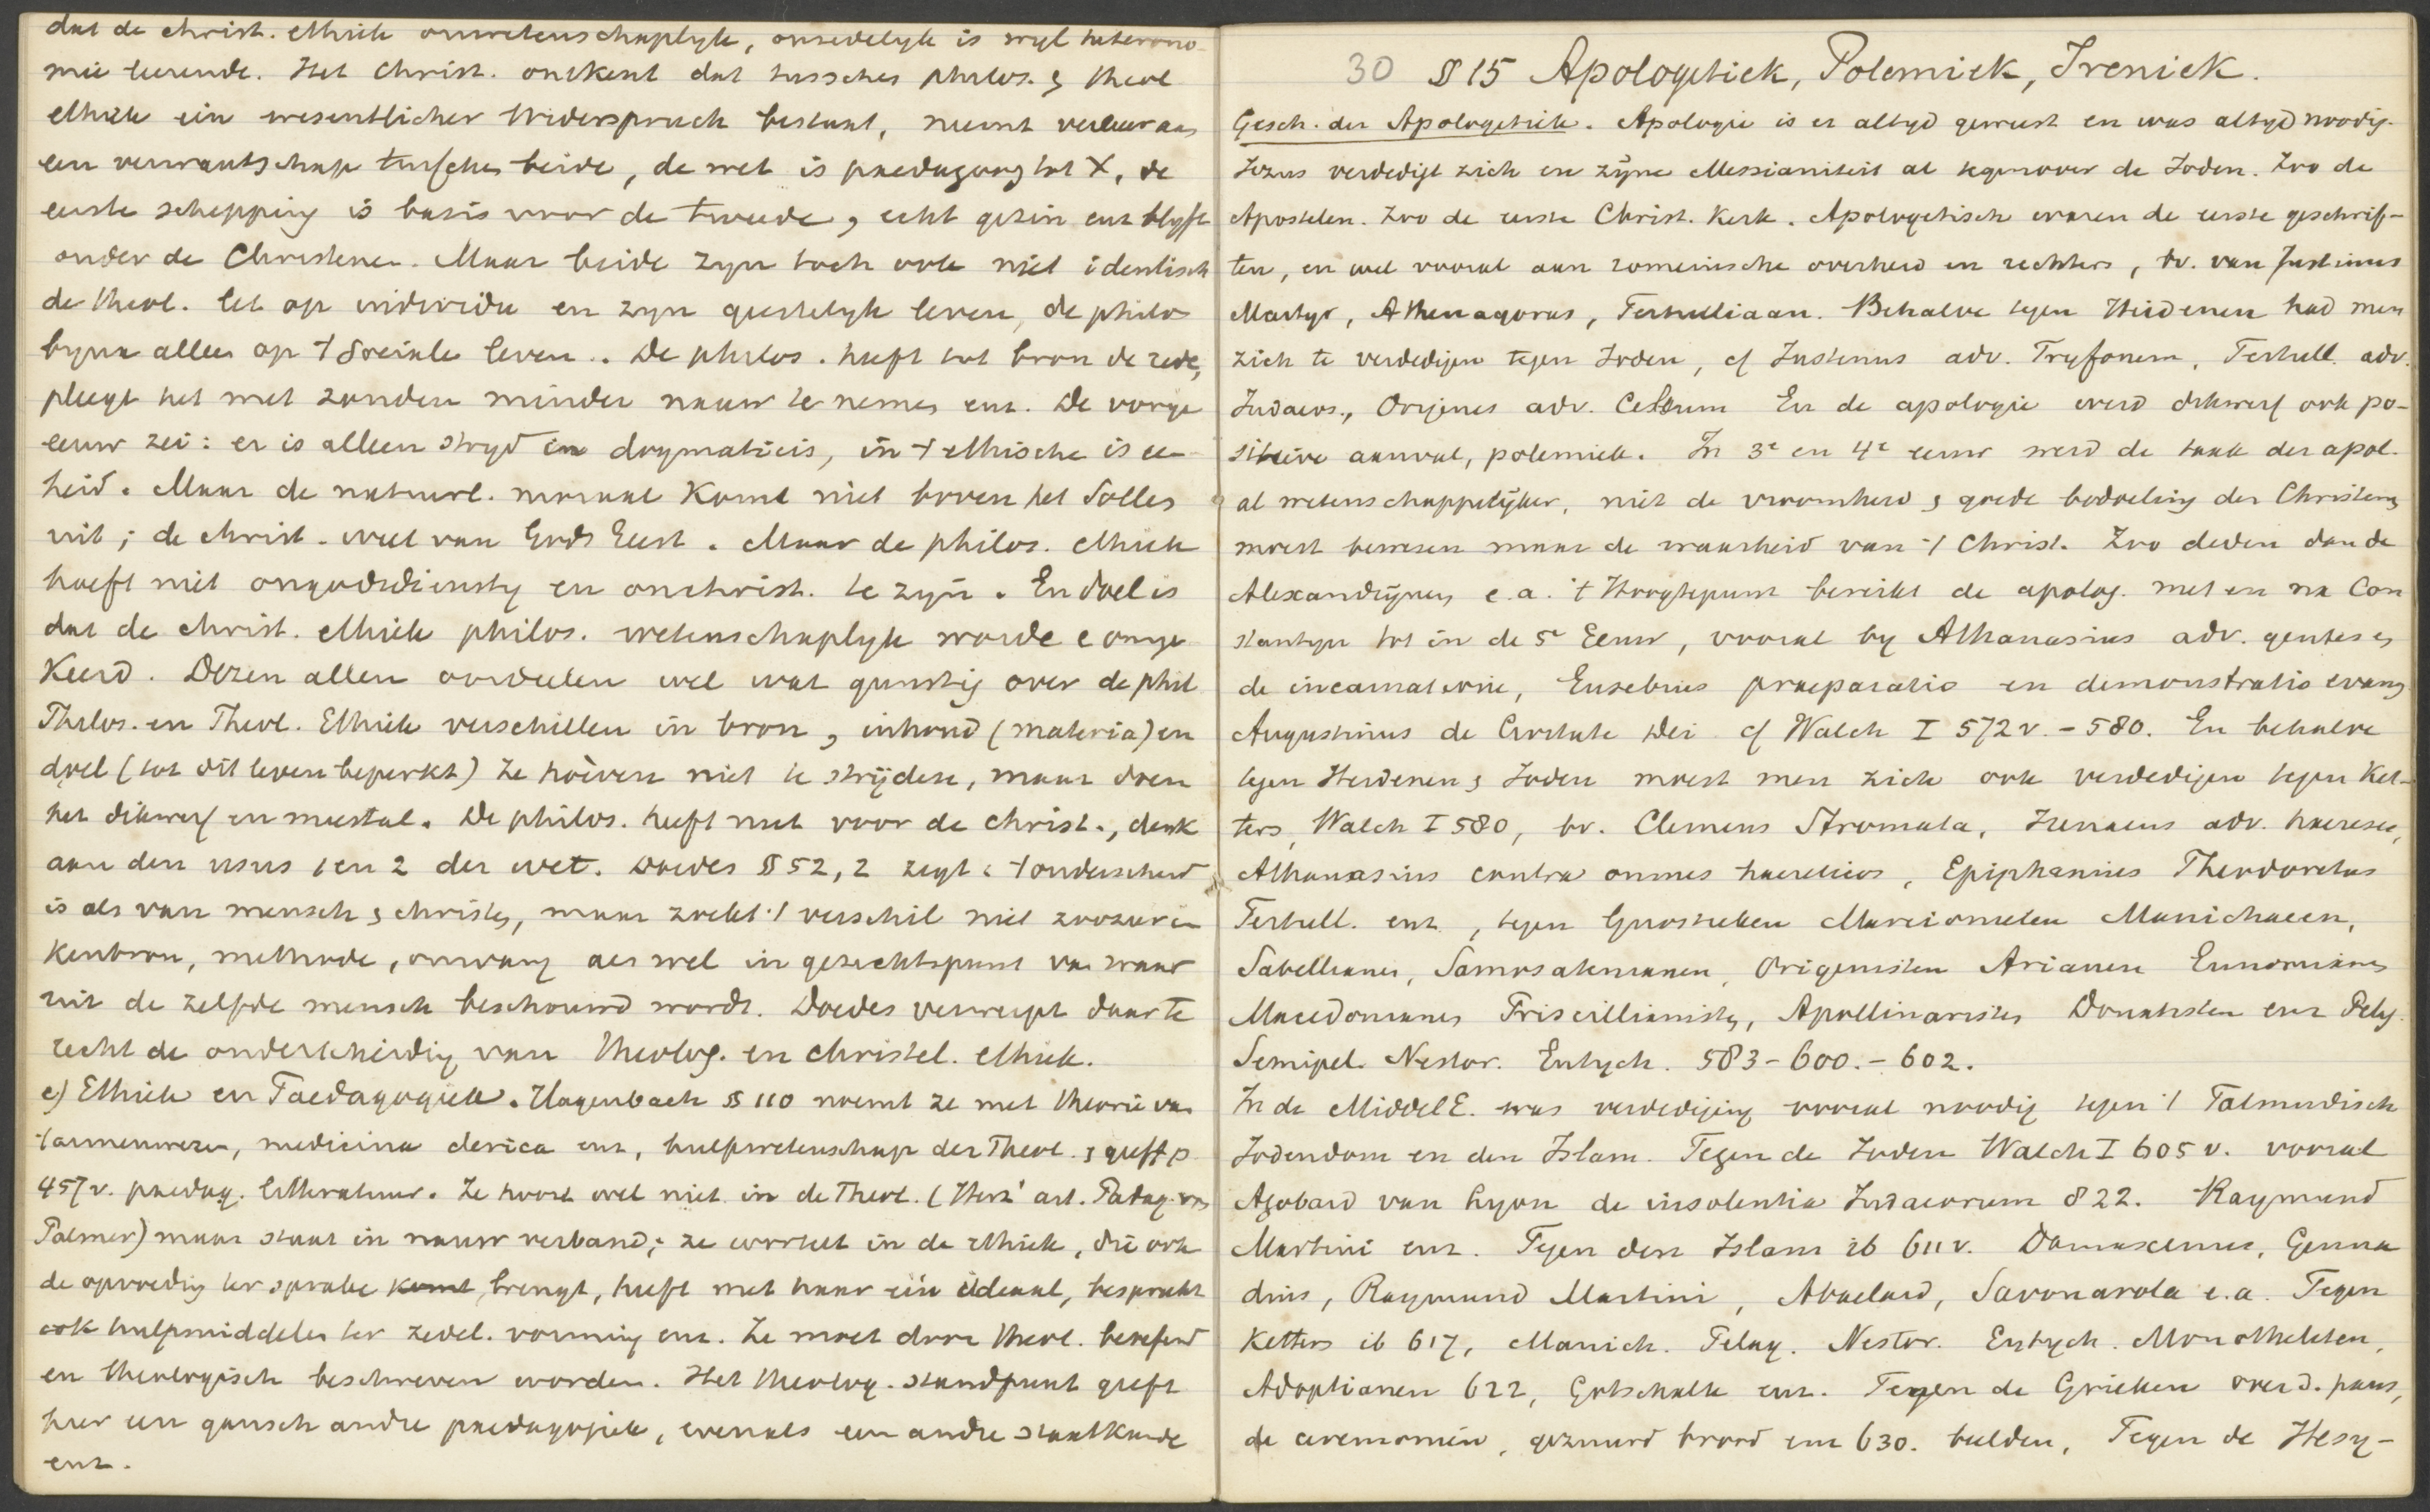 dat de christ. ethiek onwetenschaplyk, onzedelyk is wyl heterono-
mie leerende. Het Christ. ontkent dat tusschen philos. & theol
ethiek ein wesentlicher Widerspruch bestaat, neemt veeleer aan
een verwantschap tusschen beide, de wet is paedagoog tot X, de
eerste schepping is basis voor de tweede, echt gezin enz blyft
onder de Christenen. Maar beide zyn toch ook niet identisch
de theol. let op individu en zyn geestelyk leven, de philos
byna alleen op 't sociale leven. De philos. heeft tot bron de rede,
pleegt het met zonden minder nauw te nemen enz. De vorige
eeuw zei: er is alleen stryd in dogmaticis, in 't ethische is een-
heid. Maar de natuurl. moraal komt niet boven het Sollen
uit; de christ. wel van Gods Geest. Maar de philos. ethiek
hoeft niet ongodsdienstig en onchrist. te zyn. En doel is
dat de christ. ethiek philos. wetenschaplyk worde e omge
keerd. Dezen allen oordeelen wel wat gunstig over de phil
Philos. en Theol. Ethiek verschillen in bron, inhoud (materia) en
doel (tot dit leven beperkt) Ze hoeven niet te strijden, maar doen
het dikwerf en meestal. De philos. heeft nut voor de christ., denk
aan den usus 1 en 2 der wet. Doedes § 52, 2 zegt: 't onderscheid
is als van mensch & christen, maar zoekt 't verschil niet zoozeer in
kenbron, methode, omvang als wel in gezichtspunt van waar
uit de zelfde mensch beschouwd wordt. Doedes verwerpt daar te
recht de onderscheiding van theolog. en christel. ethiek.
e) Ethiek en Paedagogiek. Hagenbach § 110 noemt ze met theorie van
't armenwezen, medicina clerica enz, hulpwetenschap der Theol. & geeft p
457 v. paedag. litteratuur. Ze hoort wel niet in de Theol. (Herz' art. Padag. van
Palmer) maar staat in nauw verband; ze wortelt in de ethiek, die ook
de opvoeding ter sprake komt brengt, heeft met haar één ideaal, bespreekt
ook hulpmiddelen ter zedel. vorming enz. Ze moet door theol. beoefend
en theologisch beschreven worden. Het theolog. standpunt geeft
hier een gansch andre paedagogiek, evenals een andre staatkunde
enz.
30 § 15 Apologetiek, Polemiek, Ireniek.
Gesch. der Apologetiek. Apologie is er altyd geweest en was altyd noodig.
Jezus verdedigt zich en zijne Messianiteit al tegenover de Joden. Zoo de
Apostelen. Zoo de eerste Christ. Kerk. Apologetisch waren de eerste geschrif-
ten, en wel vooral aan romeinsche overheid en rechters, bv. van Justinus
Martyr, Athenagoras, Tertulliaan. Behalve tegen Heidenen had men
zich te verdedigen tegen Joden, cf Justinus adv. Tryfonem, Tertull. adv.
Judaeos., Origenes adv. Celsum En de apologie werd dikwerf ook po-
sitieve aanval, polemiek. In 3e en 4e eeuw werd de taak der apol.
al wetenschappelijker, niet de vroomheid & goede bedoeling der Christenen
moest bewezen maar de waarheid van 't Christ. Zoo deden dan de
Alexandrijnen e.a. 't Hoogtepunt bereikt de apolog. met en na Con
stantyn tot in de 5e Eeuw, vooral by Athanasius adv. gentes en
de incarnatione, Eusebius praeparatio en demonstratio evang
Augustinus de Civitate Dei cf Walch I 572 v. - 580. En behalve
tegen Heidenen & Joden moest men zich ook verdedigen tegen Ket-
ters, Walch I 580, bv. Clemens Stromata, Irenaeus adv. haereses,
Athanasius contra omnes haereticos, Epiphanius Theodoretus
Tertull. enz., tegen Gnostieken Marcionieten Manichaeen,
Sabellianen, Samosatenianen, Origenisten Arianen Eunomianen
Macedonianen Priscillianisten, Apollinaristen Donatisten enz Pelag.
Semipel. Nestor. Eutych. 583-600.- 602.
In de MiddelE. was verdediging vooral noodig tegen 't Talmudisch
Jodendom en den Islam. Tegen de Joden Walch I 605 v. vooral
Agobard van Lyon de insolentia Judaeorum 822. Raymund
Martini enz. Tegen den Islam ib 611 v. Damascenus, Genna
dius, Raymund Martini, Abaelard, Savonarola e.a. Tegen
Ketters ib 617, Manich. Pelag. Nestor. Eutych. Monotheleten,
Adoptianen 622, Gotschalk enz. Tegen de Grieken over d. paus,
de ceremoniën, gezuurd brood enz 630. beelden, Tegen de Hesy-